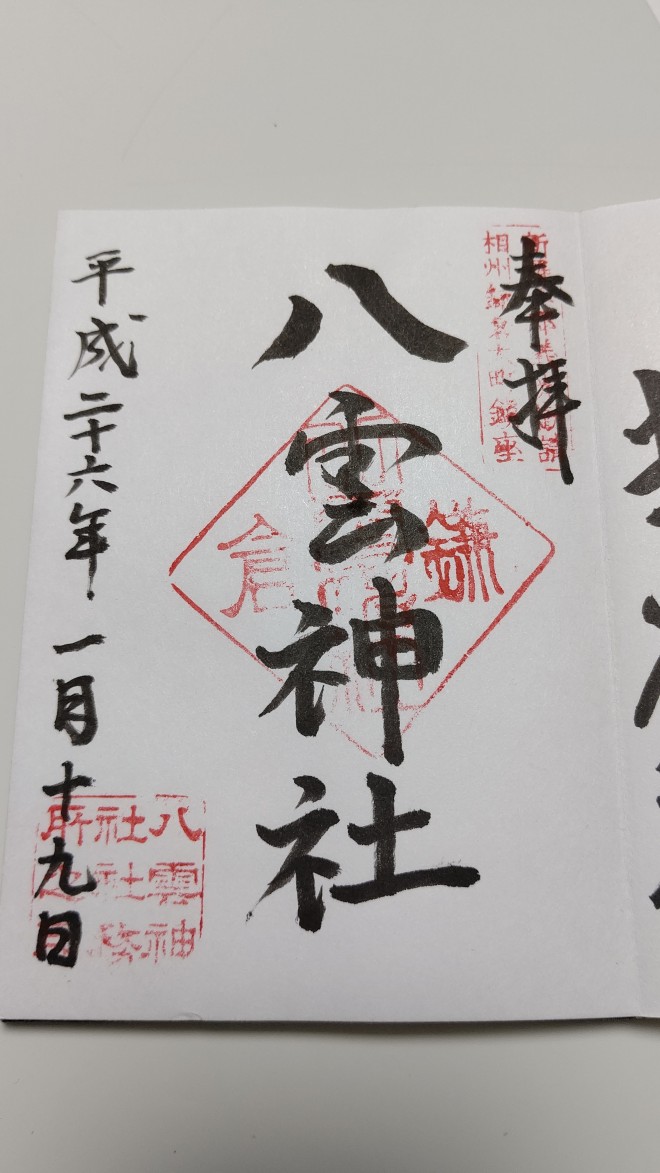 奉拝
相州鎌倉大町鎮座
八雲神社
鎌倉
平成二十六年一月十九日
八雲神
社社務
所之印